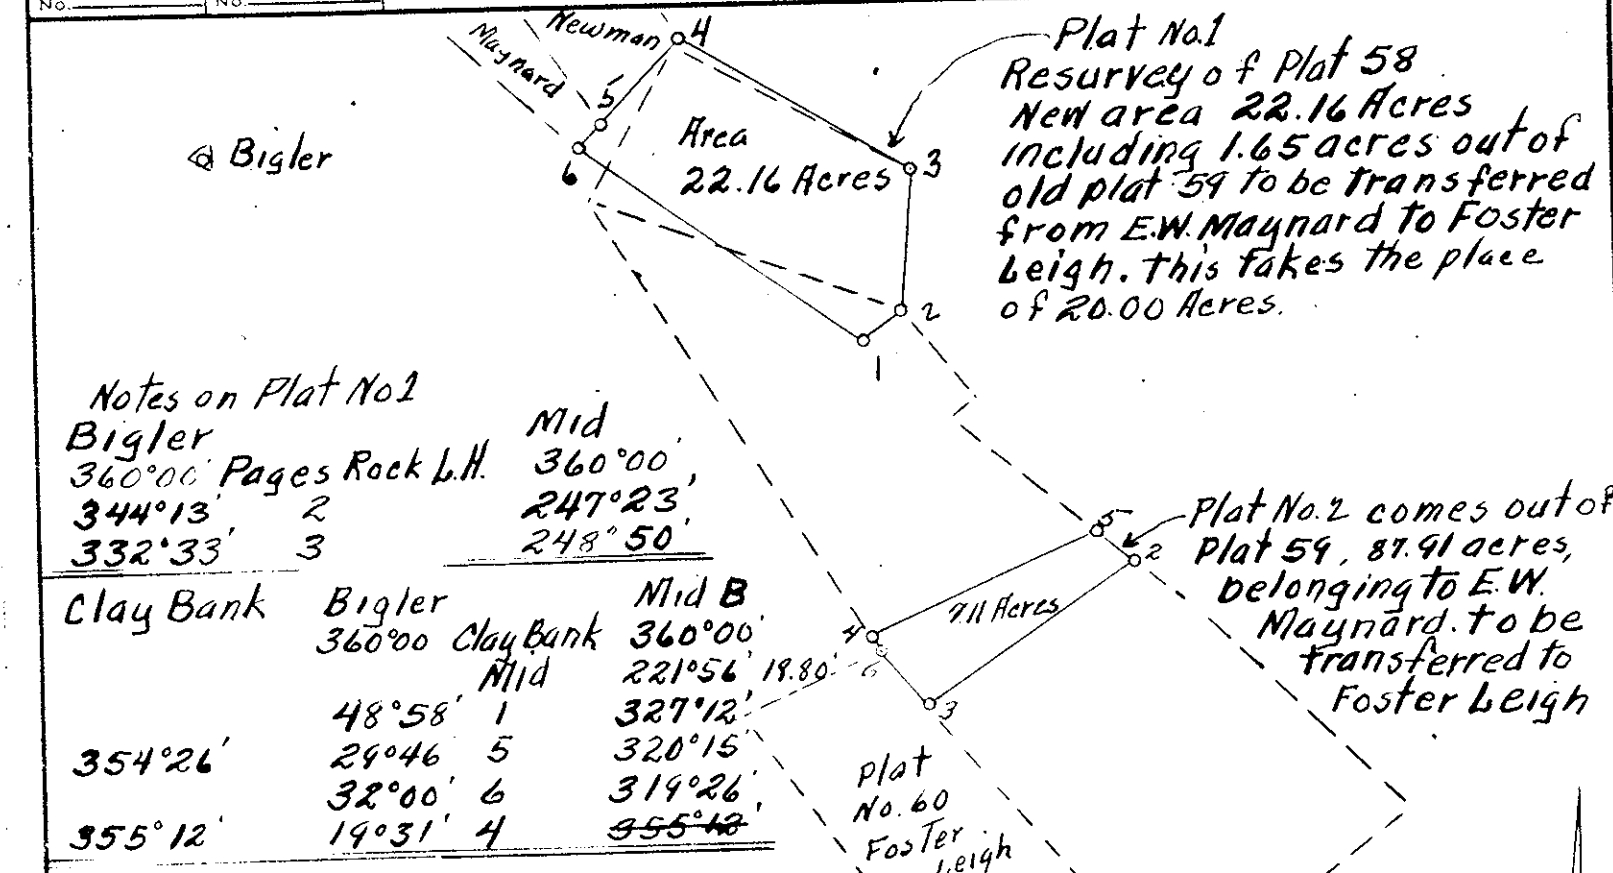 No. No.
Newman 4
Maynard
5
Bigler
6
Area
22.16 Acres
3
2
1
Plat No.1
Resurvey of Plat 58
New area 22.16 Acres
including 1.65 acres out of
old plat 59 to be transferred
from E.W. Maynard to Foster
Leigh. This takes the place
of 20.00 Acres.
Notes on Plat No1
Bigler Mid
360°00' Pages Rock L.H. 360°00'
344°13' 2 247°23'
332°33' 3 248°50'
Clay Bank Bigler Mid B
360°00 Clay Bank 360°00'
Mid 221°56' 19.80'
48°58' 1 327°12'
354°26' 29°46 5 320°15'
32°00' 6 319°26'
355°12' 19°31' 4 355°12'
5
2
4
6
3
7.11 Acres
Plat No.2 comes out of
Plat 59, 87.91 acres,
belonging to E.W.
Maynard. to be
transferred to
Foster Leigh
Plat
No. 60
Foster
Leigh